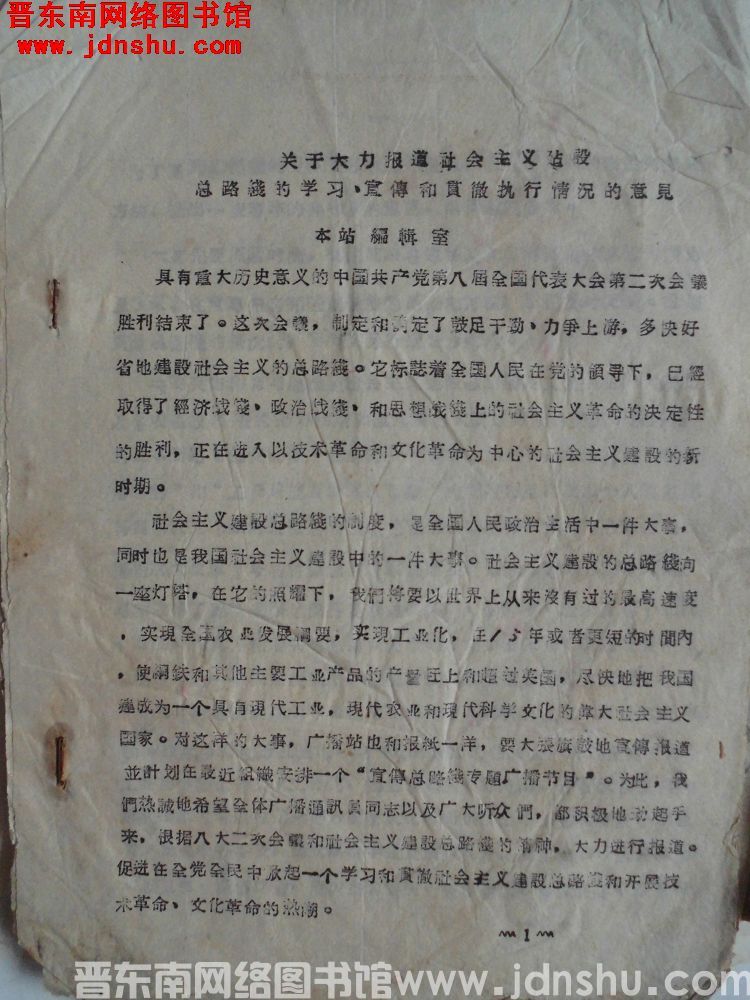 晋东南网络图书馆
www.jdnshu.com
关于大力报道社会主义建設
总路綫的学习、宣傳和貫徹执行情況的意見
本站編輯室
具有重大历史意义的中國共产党第八屆全国代表大会第二次会議
胜利結束了。这次会議，制定和 定了鼓足干勁、力爭上游，多快好
省地建設社会主义的总路綫。它标誌着全國人民在党的領导下，已經
取得了經济战綫、政治战綫、和思想战綫上的社会主义革命的决定性
的胜利，正在进入以技术革命和文化革命为中心的社会主义建設的新
时期。
社会主义建設总路綫的制度，是全國人民政治生活中一件大事，
同时也是我国社会主义建設中的一件大事。社会主义建設的总路綫向
一座灯塔，在它的照耀下，我們将要以世界上从来沒有过的最高速度
，实現全國农业发展綱要，实現工业化，在15年或者更短的时間內
，使鋼鉄和其他主要工业产品的产量赶上和超过英國，尽快地把我国
建成为一个具有現代工业，現代农业和現代科学文化的偉大社会主义
國家。对这洋的大事，广播站也和报紙一洋，要大張旗鼓地宣傳报道
並計划在最近組織安排一个“宣傳总路綫专題广播节目”。为此，我
們热誠地希望全体广播通訊員同志以及广大听众們，都积极地动起手
来，根据八大二次会議和社会主义建設总路綫的精神，大力进行报道。
促进在全党全民中掀起一个学习和貫徹社会主义建設总路綫和开展技
术革命、文化革命的热潮。
1
晋东南网络图书馆www.jdnshu.com